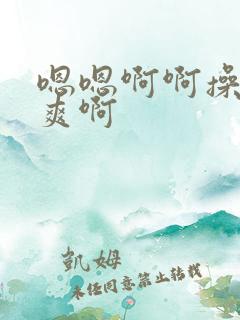 嗯嗯啊啊操
爽啊
凱姆
未经同意禁止转载